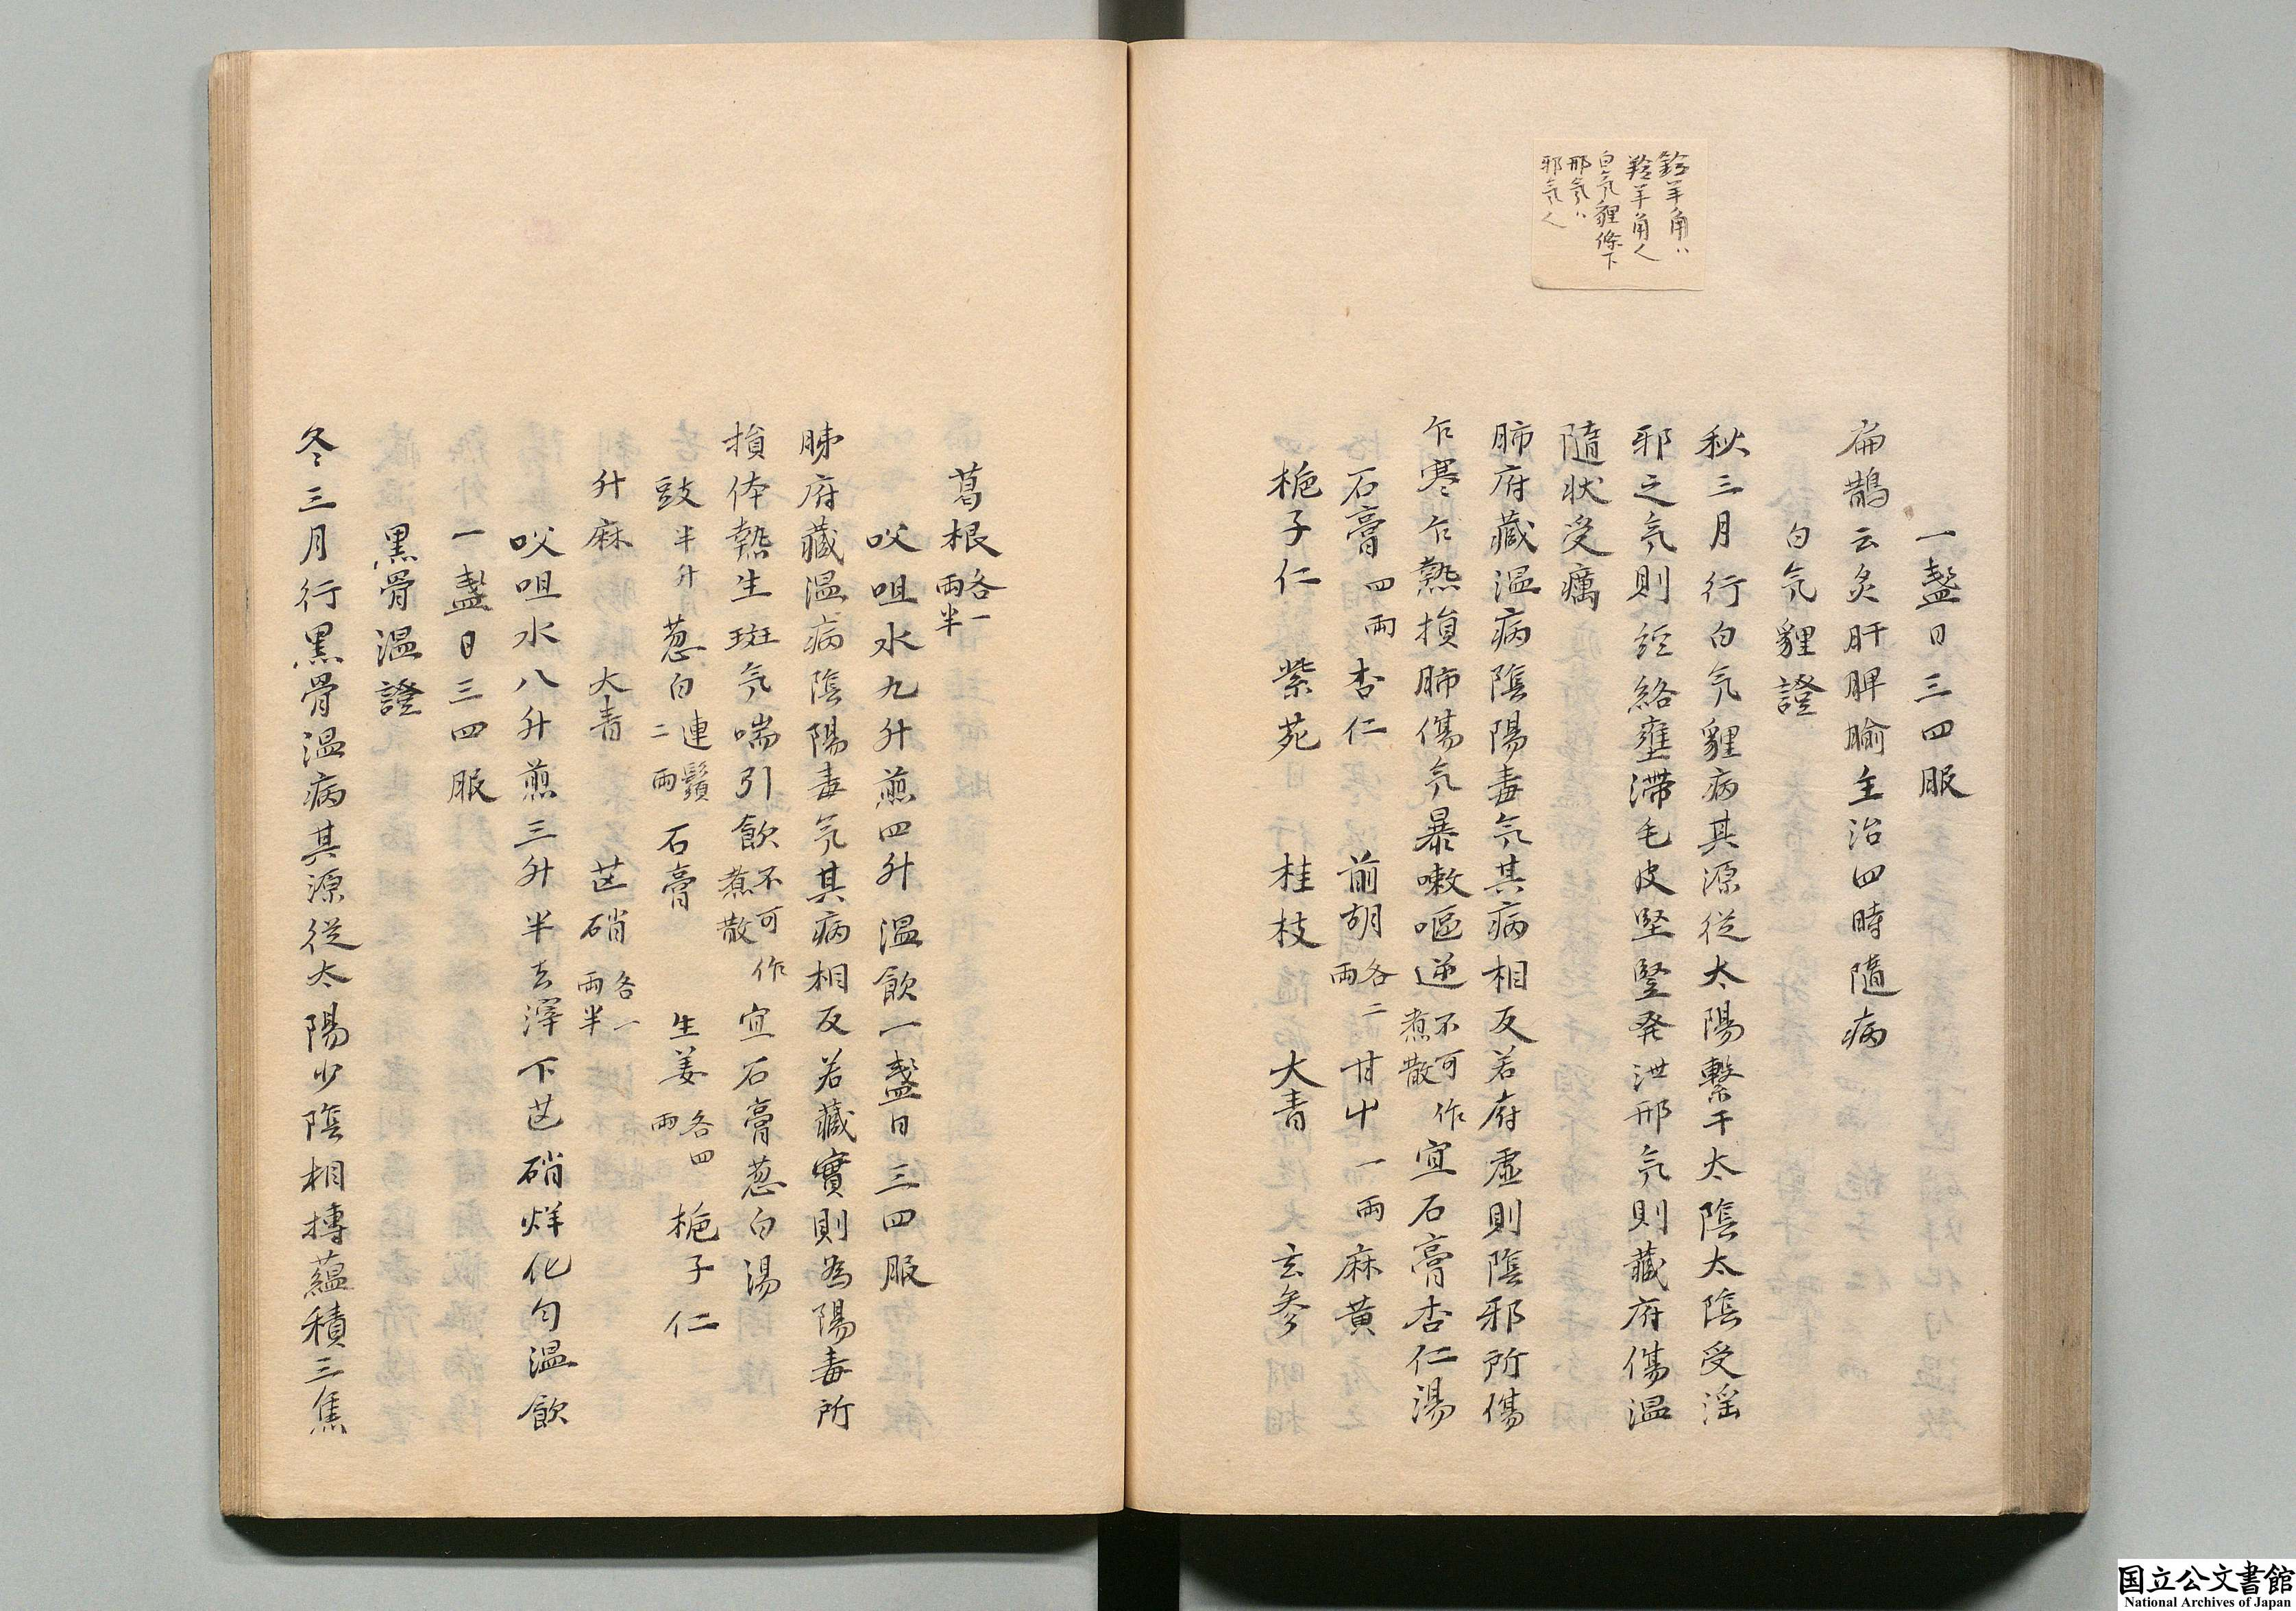 羚羊角〻
羚羊角く
白気貍條下
邢気〻
邪気く
一盞日三四服
扁鵲云灸肝脾腧主治四時隨病
白気貍證
秋三月行白気貍病其源従太陽繋干太陰太陰受淫
邪之気則経絡壅滞毛皮堅竪発泄邢気則蔵府傷温
隨状受癘
肺府蔵温病陰陽毒気其病相反若府虚則陰邪所傷
乍寒乍熱損肺傷気暴嗽嘔逆不可作煮散宜石膏杏仁湯
石膏四両 杏仁 前胡各二両 甘屮一両 麻黄
梔子仁 紫苑 桂枝 大青 玄参
葛根各一両半
㕮咀水九升煎四升温飲一盞日三四服
肺府蔵温病陰陽毒気其病相反若蔵實則為陽毒所
損体熱生斑気喘引飲不可作煮散宜石膏葱白湯
豉半升 葱白連鬚二両 石膏 生姜各四両 梔子仁
升麻 大青 芒硝各一両半
㕮咀水八升煎三升半去滓下芒硝烊化匀温飲
一盞日三四服
黒骨温證
冬三月行黒骨温病其源従太陽少陰相搏蘊積三焦
国立公文書館
National Archives of Japan